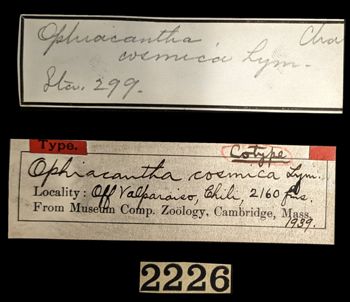 Ophiacantha Cha
cosmica Lym.
Sta. 299.
Type. Cotype
Ophiacantha cosmica Lym.
Locality: Off Valparaiso, Chili, 2160 fms.
From Museum Comp. Zoölogy, Cambridge, Mass.
1939.
2226